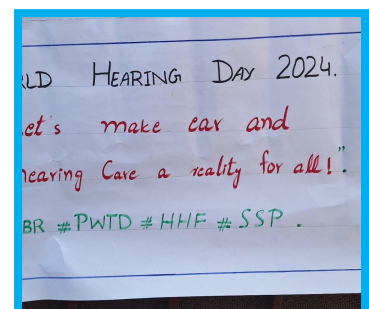 RLD HEARING DAY 2024.
et's make ear and
hearing Care a reality for all!".
BR #PWTD #HHF #SSP.